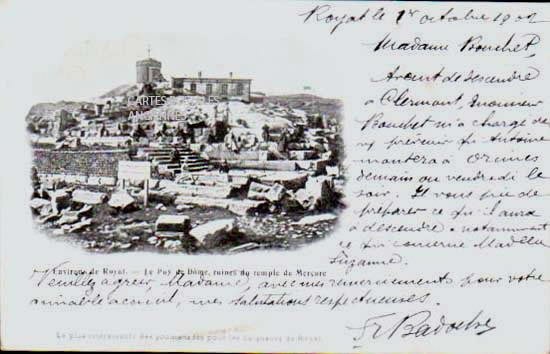 Royat le 1er octobre 1902
Madame Bouchet,
Avant de descendre
à Clermont, Monsieur
Bouchet m'a chargé de
vs prévenir qu' Antoine
montera à Orcines
demain ou vendredi le
soir. Il vous prie de
préparer ce qu'il aura
à descendre notamment
ce qui concerne Madelle
Suzanne.
Veuillez agréer, Madame, avec mes remerciements pour votre
aimable accueil, mes salutations respectueuses.
CARTES POSTALES
ANCIENNES
Environs de Royat. — Le Puy de Dôme, ruines du temple de Mercure
La plus intéressante des promenades pour les baigneurs de Royat.